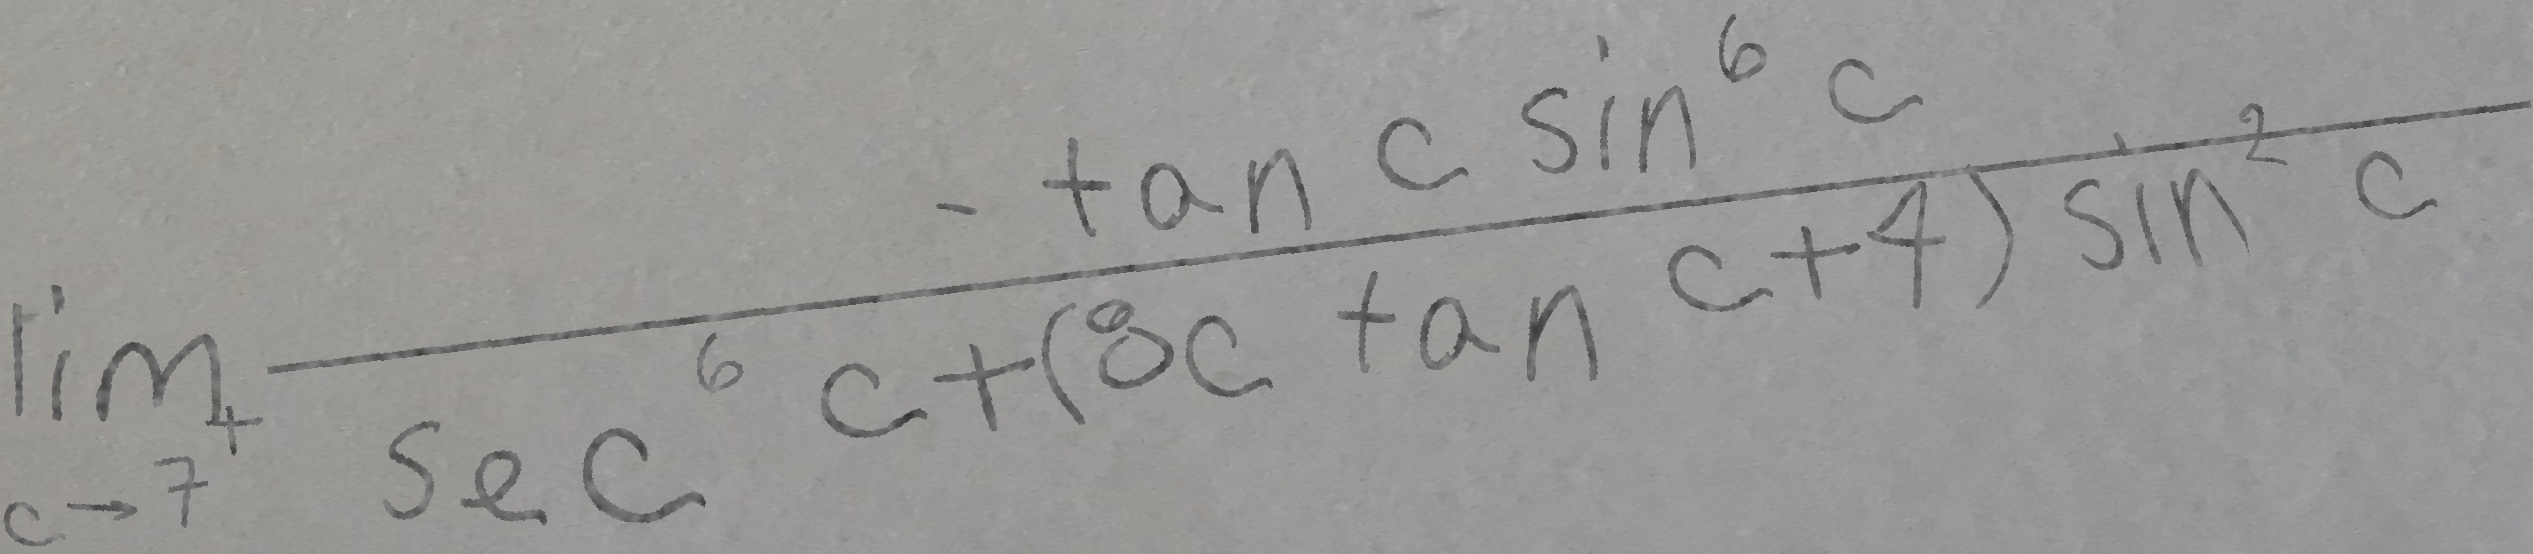 \lim_{c \to 7^+} \frac{-\tan c \sin^6 c}{\sec^6 c + (8c \tan c + 4) \sin^2 c}